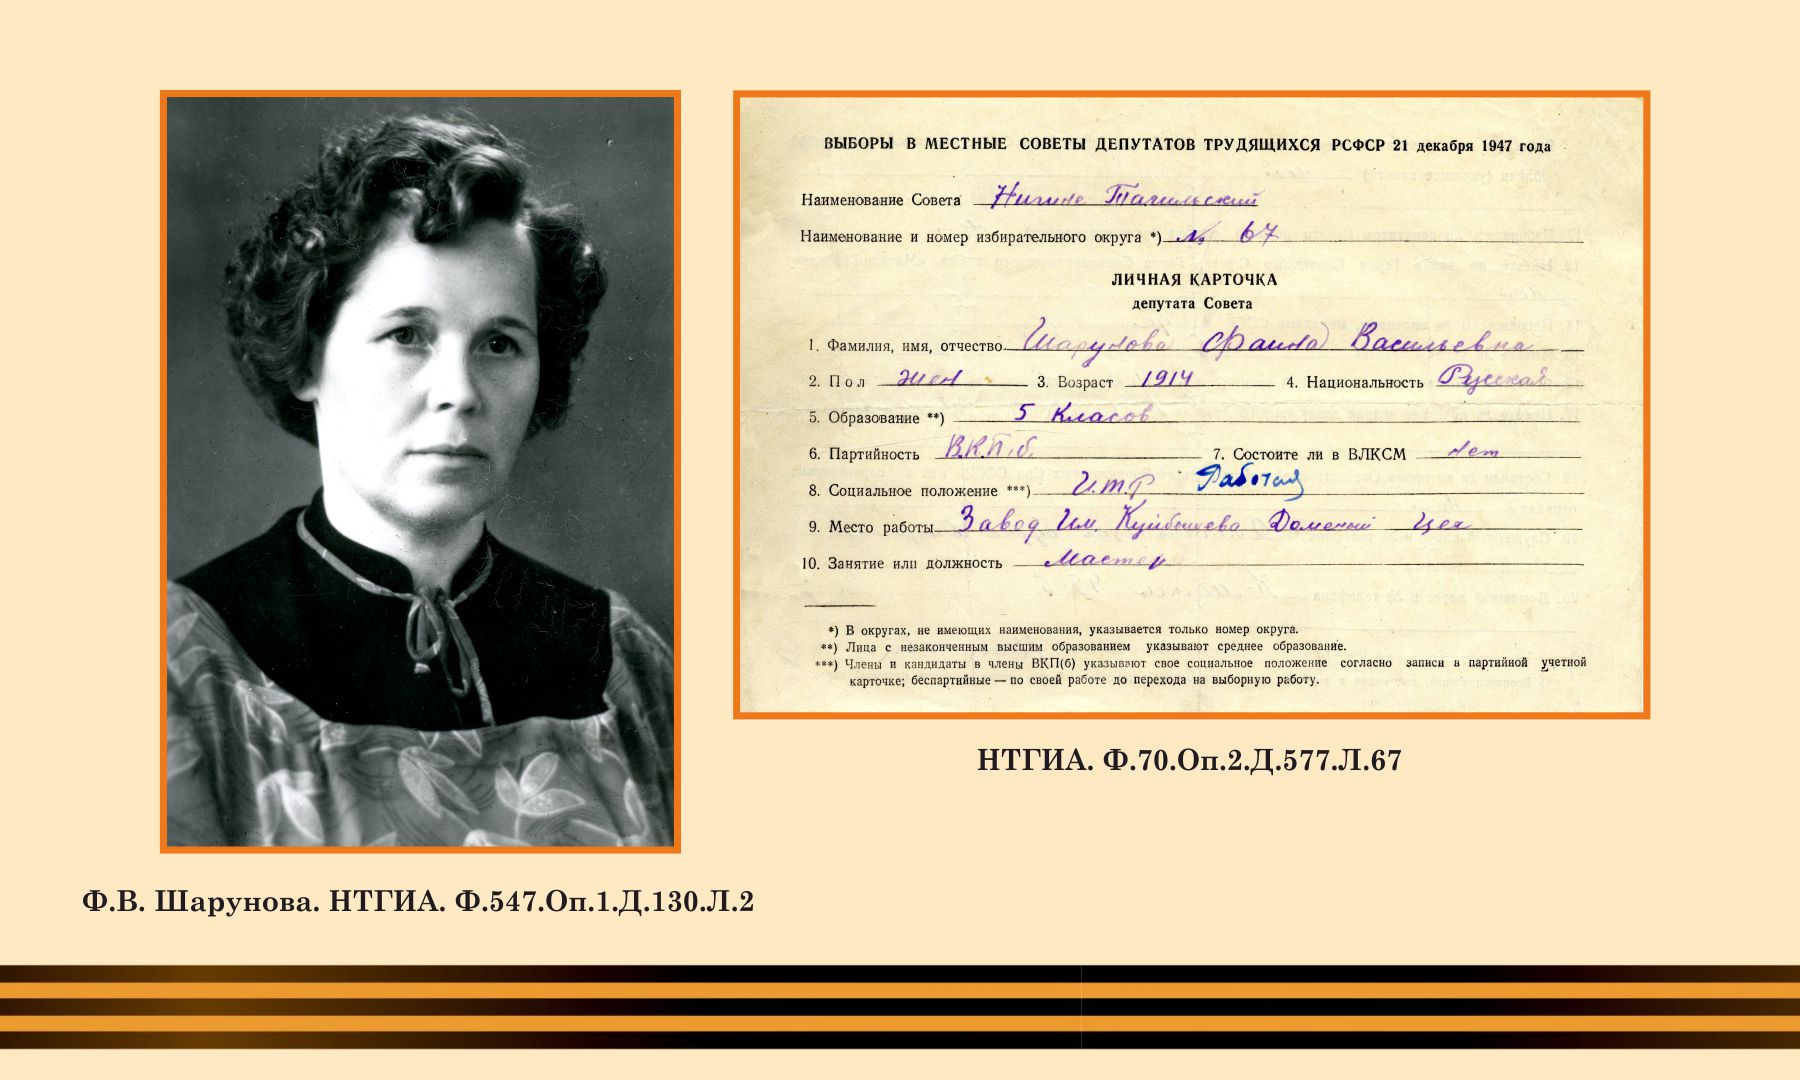 ВЫБОРЫ В МЕСТНЫЕ СОВЕТЫ ДЕПУТАТОВ ТРУДЯЩИХСЯ РСФСР 21 декабря 1947 года
Наименование Совета Нижне Тагильский
Наименование и номер избирательного округа *) № 67
ЛИЧНАЯ КАРТОЧКА
депутата Совета
1. Фамилия, имя, отчество Шарунова Фаина Васильевна
2. Пол жен 3. Возраст 1914 4. Национальность Русская
5. Образование **) 5 Класов
6. Партийность В.К.П.б. 7. Состоите ли в ВЛКСМ нет
8. Социальное положение ***) И.Т.Р. Работая
9. Место работы Завод Им. Куйбышева Доменый Цех
10. Занятие или должность Мастер
*) В округах, не имеющих наименования, указывается только номер округа.
**) Лица с незаконченным высшим образованием указывают среднее образование.
***) Члены и кандидаты в члены ВКП(б) указывают свое социальное положение согласно записи в партийной учетной
карточке; беспартийные — по своей работе до перехода на выборную работу.
НТГИА. Ф.70.Оп.2.Д.577.Л.67
Ф.В. Шарунова. НТГИА. Ф.547.Оп.1.Д.130.Л.2